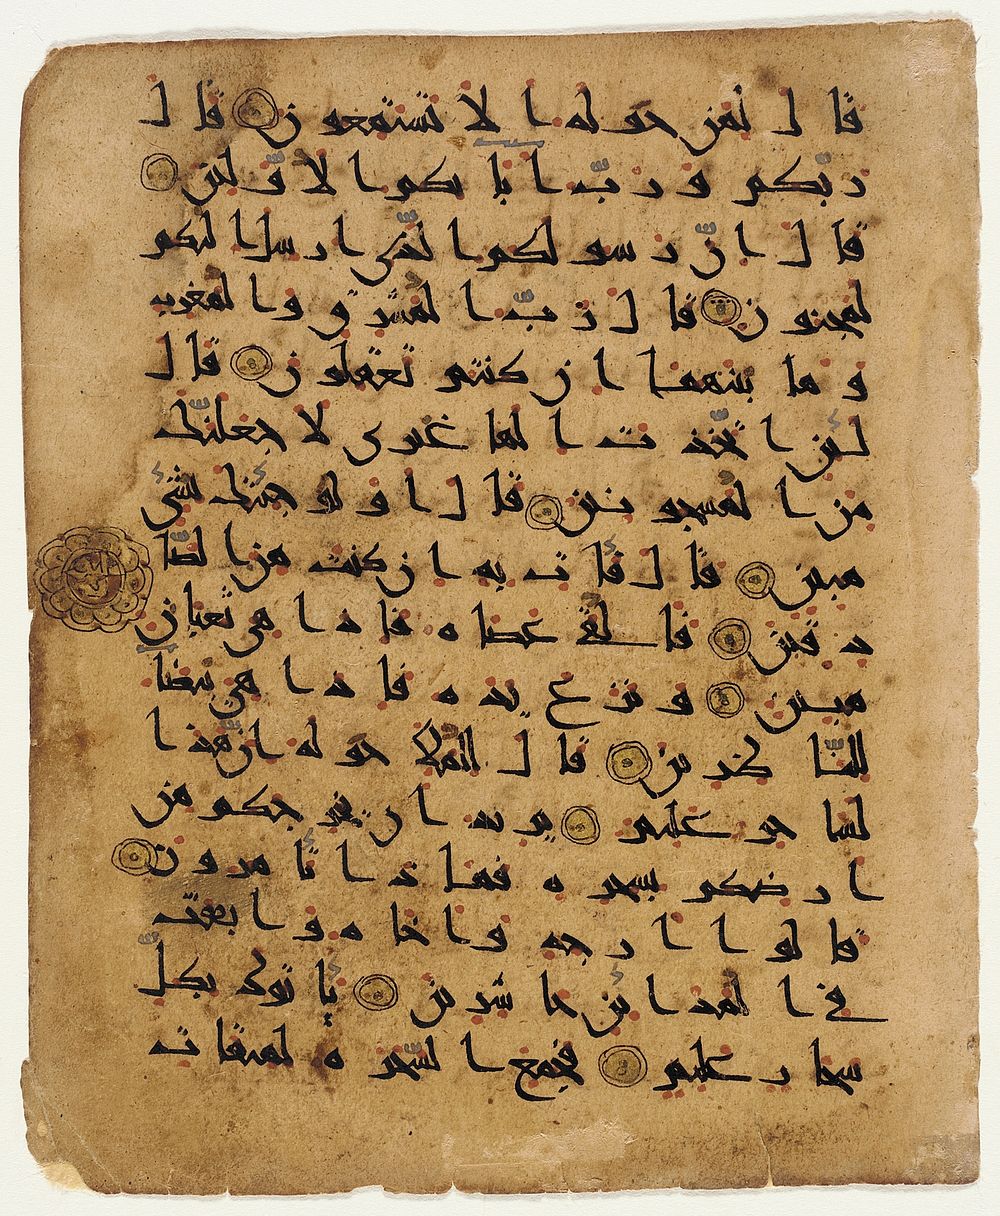 قال لمن حوله ألا تستمعون قال
ربكم ورب آبائكم الأولين
قال إن رسولكم الذي أرسل إليكم
لمجنون قال رب المشرق والمغرب
وما بينهما إن كنتم تعقلون قال
لئن اتخذت إلها غيري لأجعلنك
من المسجونين قال أولو جئتك بشيء
مبين قال فأت به إن كنت من الصا
دقين فألقى عصاه فإذا هي ثعبان
مبين ونزع يده فإذا هي بيضا
ء للناظرين قال للملإ حوله إن هذا
لساحر عليم يريد أن يخرجكم من
أرضكم بسحره فماذا تأمرون
قالوا أرجه وأخاه وابعث
في المدائن حاشرين يأتوك بكل
سحار عليم فجمع السحرة لميقات